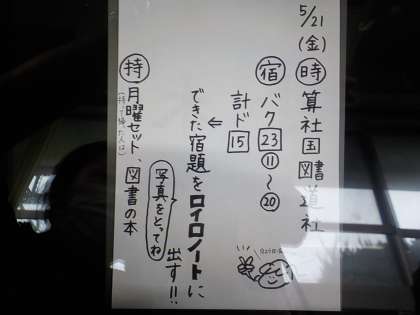 5/21
(金)
時 算社国図書道社
宿 バク 23 ⑪〜⑳
計ド 15
⇐
できた宿題をロイロノートに
出す!!
写真をとってね
持 月曜セット、図書の本